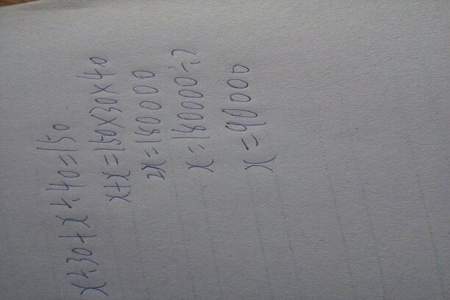 x÷30+x÷40=150
x+x=150×30×40
2x=180000
x=180000÷2
x=90000